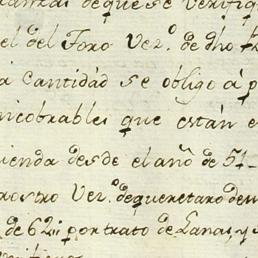 de que se verifiq
el del Toro Vez.º de dho
a Cantidad se obligo á p
ncobrables que están e
ienda desde el año de 51
rostro Vez.º de queretaro
de 62 ii por trato de Lanas, y